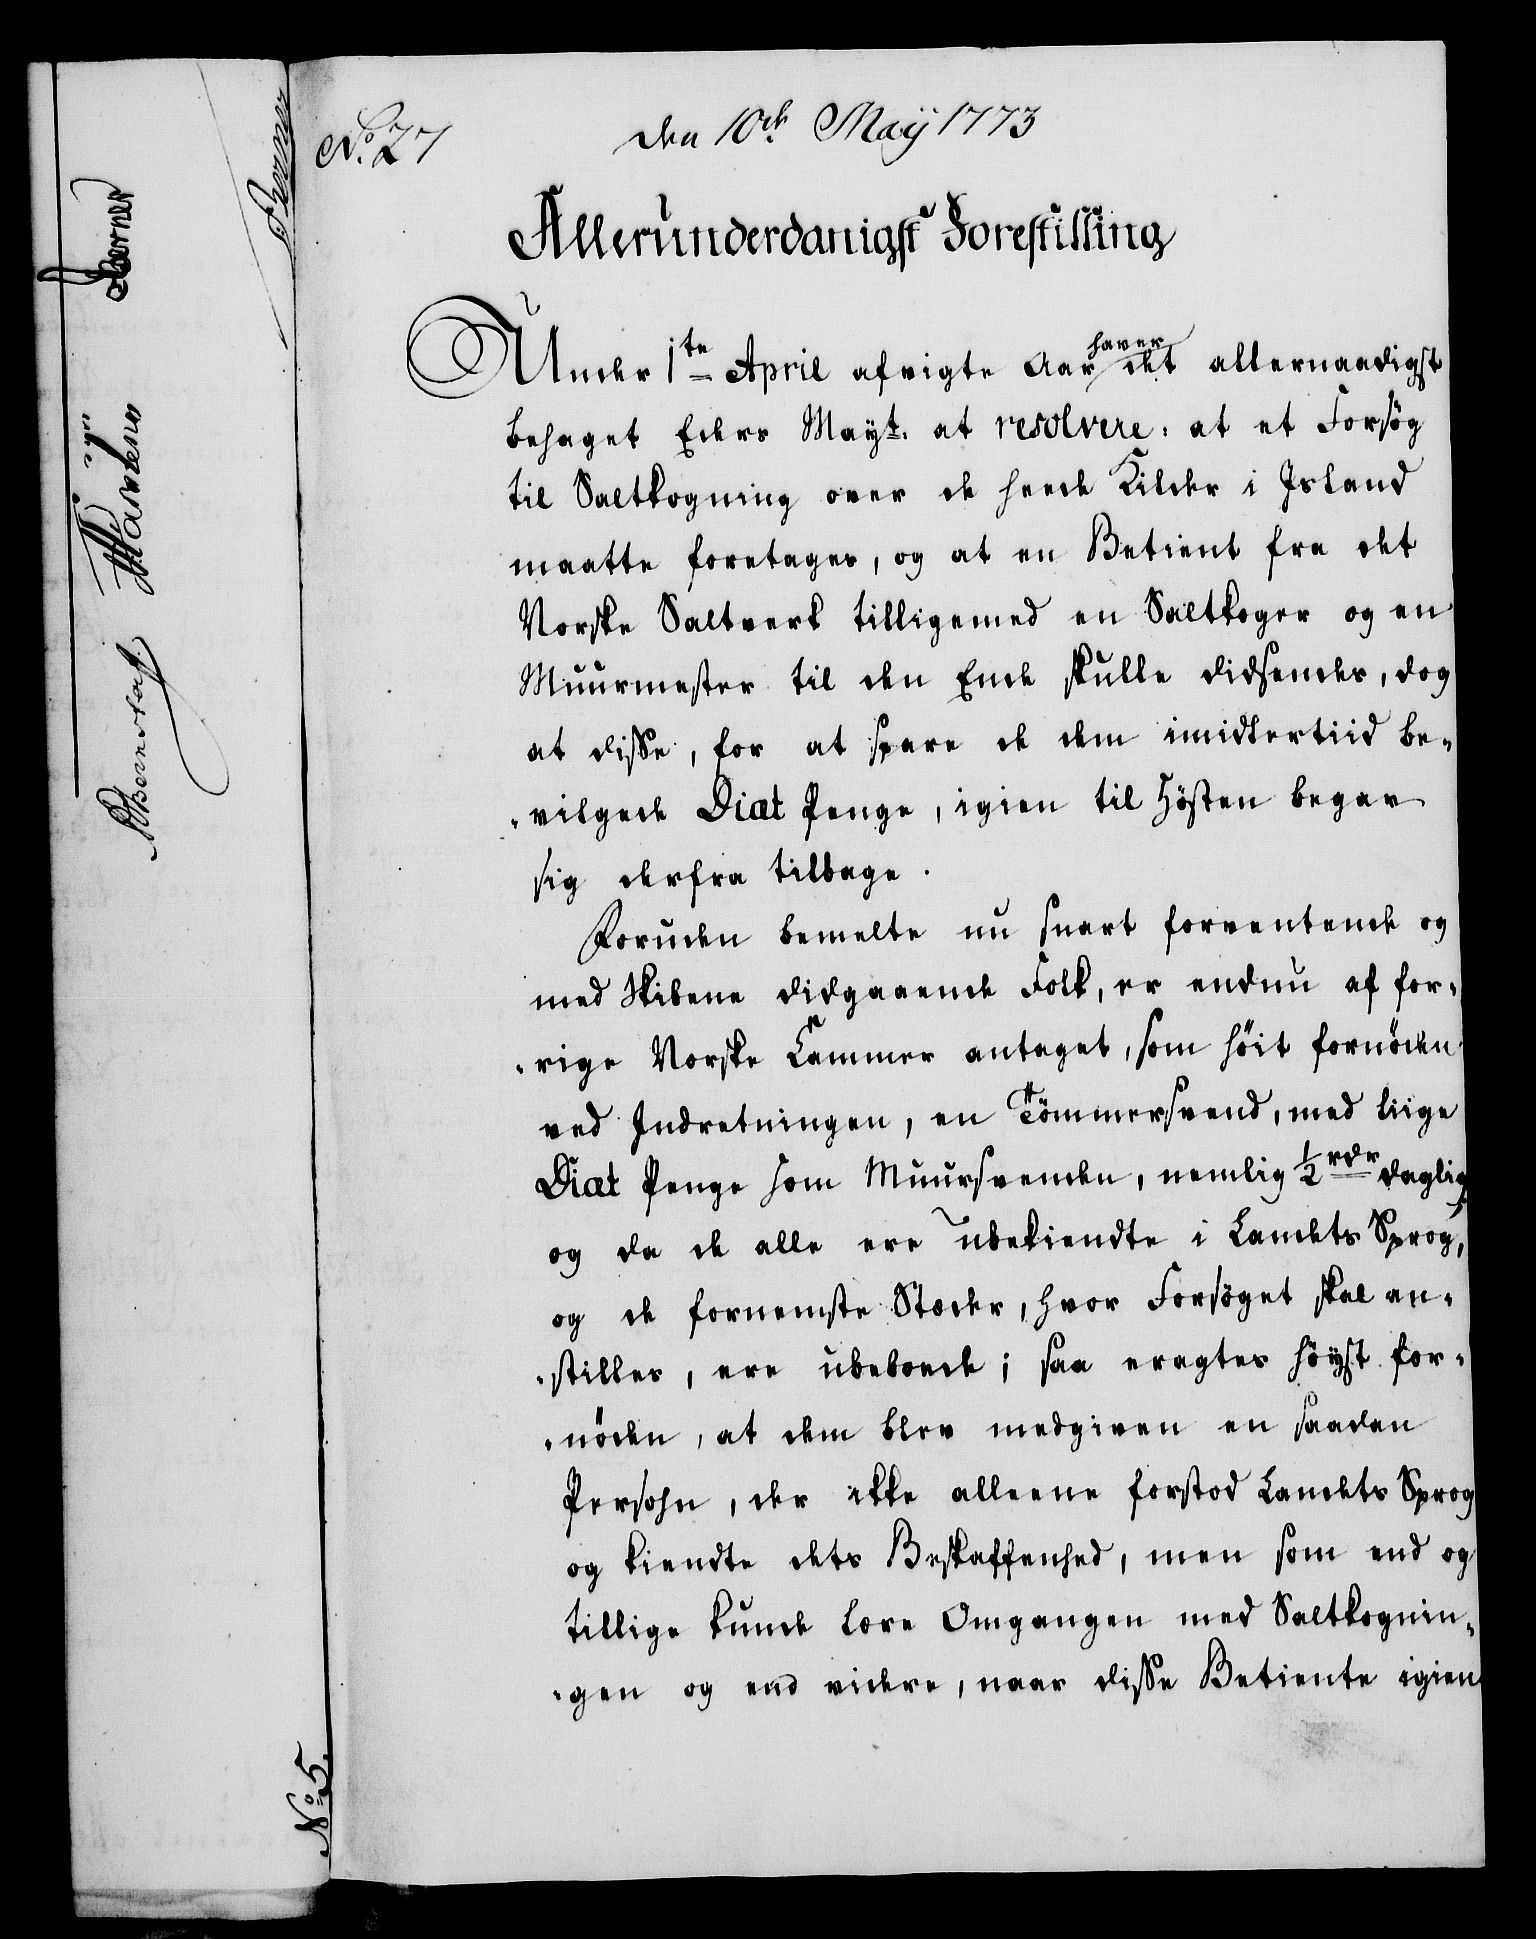 No. 27
den 10de Maÿ 1773
Allerunderdanigst Forestilling
Under 1te April afvigte Aar haver det allernaadigst
behaget Eders Mayt. at resolvere: at et Forsøg
til Saltkogning over de heede Kilder i Island
maatte foretages, og at en Betient fra det
Norske Saltverk tilligemed en Saltkoger og en
Muurmester til den Ende skulle didsendes, dog
at disse, for at spare de dem imidlertiid be-
-vilgede Diæt Penge, igien til Høsten begav
sig derfra tilbage.
Foruden bemelte nu snart forventende og
med Skibene didgaaende Folk, er endnu af for-
-rige Norske Cammer antaget, som høit fornøden
ved Indretningen, en Tømmersvend, med liige
Diæt Penge som Muursvenden, nemlig 1/2 rdr daglig,
og da de alle ere ubekiendte i Landets Sprog,
og de fornemste Stæder, hvor Forsøget skal an-
-stilles, ere ubeboede; saa eragtes høyst for-
-nøden, at dem blev medgiven en saadan
Persohn, der ikke alleene forstod Landets Sprog
og kiendte dets Beskaffenhed, men som end og
tillige kunde lære Omgangen med Saltkognin-
-gen og end videre, naar disse Betiente igien
No. 5.